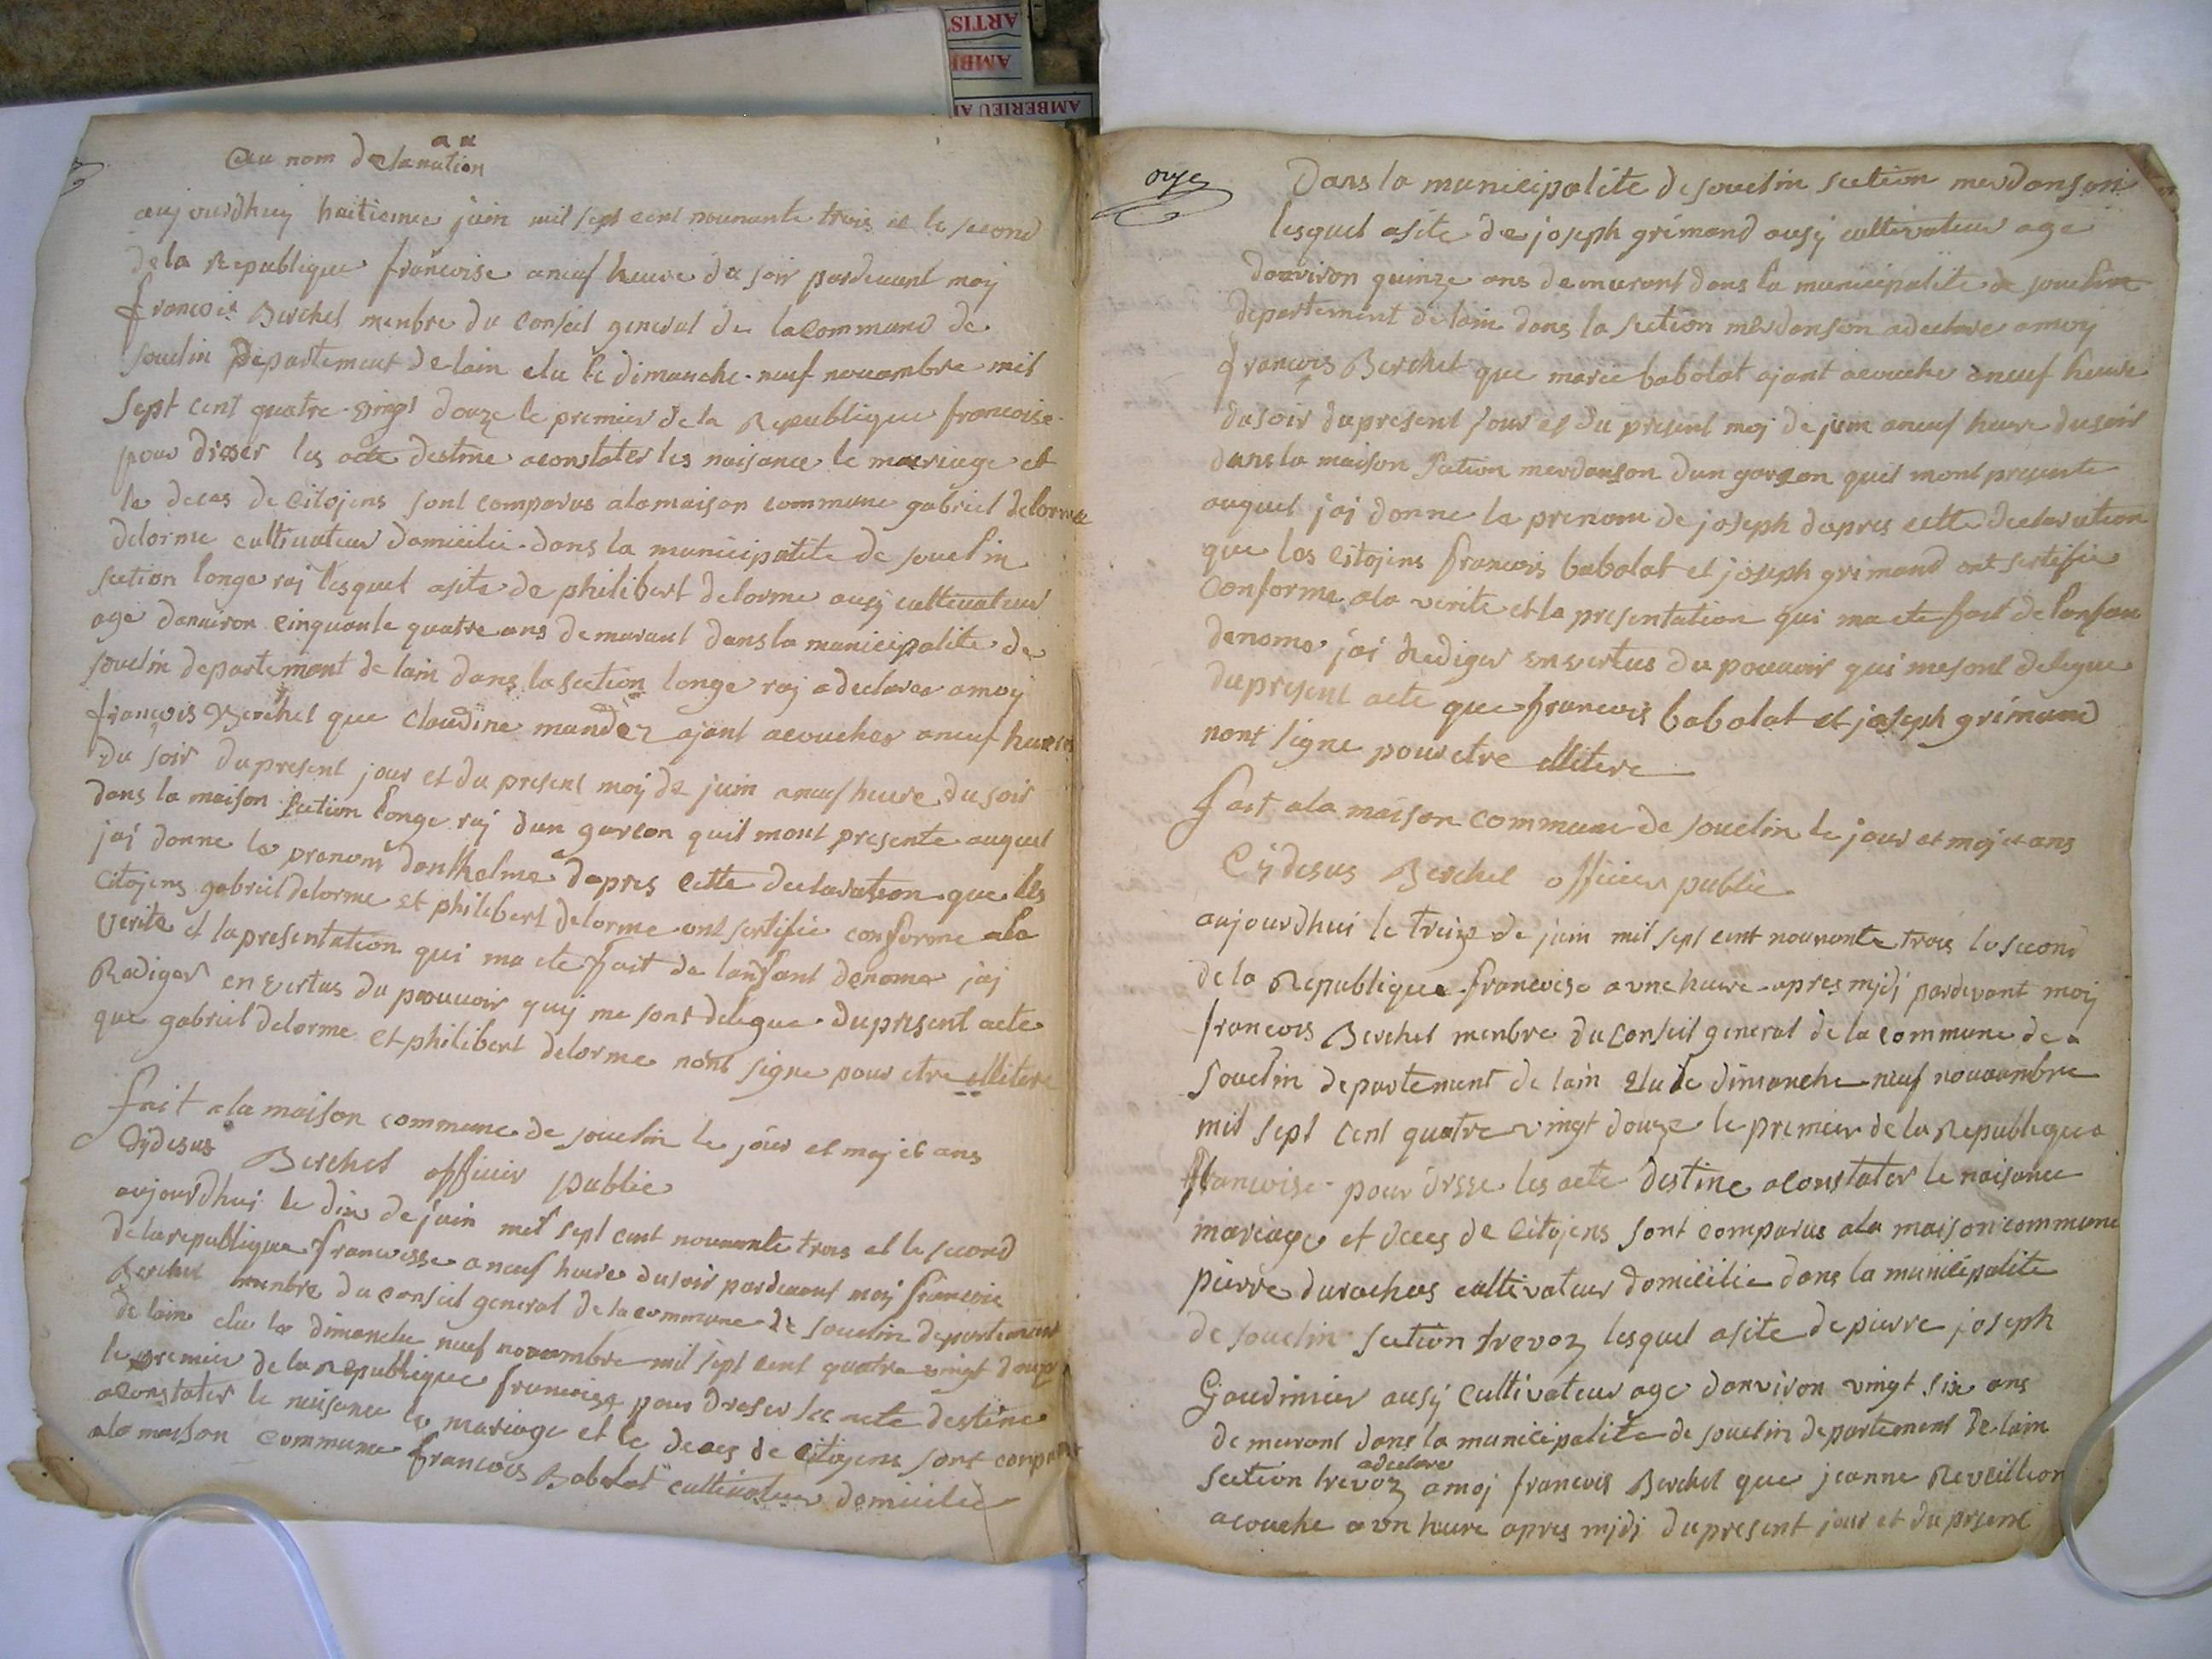 ARTIS
AMBE
AMBERIEU A
au nom de lanation
aujourdhuy huitieme juin mil sept cent nounante trois et le second
de la Republique francoise aneuf heure du soir pardevant moy
francois Berchet menbre du conseil general de lacommune de
souclin departement de lain elu le dimanche neuf nouambre mil
sept cent quatre vingt douze le premier de la Republique francoise
pour drsser les acte destine aconstater les naisance le mariage et
le deces de citojens sont comparus alamaison commune gabriel delorme
delorme cultivateur domicilie dans la municipalite de souclin
section longe raj lesquel asite de philibert delorme ausy cultivateur
age danviron cinquante quatre ans demurant dans la municipalite de
souclin departement de lain dans la section longe raj adeclarer amoy
francois Berchet que claudine mandez ajant acoucher aneuf heures
du soir du present jour et du present moy de juin aneuf heure du soir
dans la maison section longe raj dun garcon quil mont presente auquel
jai donne le prenom danthelme dapres cette declaration que les
citojens gabriel delorme et philibert delorme ont sertifie conforme ala
verite et lapresentation qui ma ete fait de lanfant denomer jaj
Radiger en vertus du pouvoir quy me sont delegue du present acte
que gabriel delorme et philibert delorme nont signe pour etre illitere
fait ala maison commune de souclin le jour et moy et ans
cydesus Berchet officier public
aujourdhuj le dix de juin mil sept cent nounante trois et le second
de larepublique francoisse aneuf heure dusoir pardevant moy francois
Berchet menbre du conseil general de la commune de souclin departement
de lain elu le dimanche neuf nouambre mil sept cent quatre vingt douze
le premier de la Republique francoise pour dreser les acte destine
aconstater le naisance le mariage et le deces de citojens sont conparus
ala maison commune francois Babolat cultivateur domicilie
onze
Dans la municipalite de souclin section merdanson
lesquel asite de joseph grimand ausy cultivateur age
danviron quinze ans demurant dans la municipalite de souclin
departement de lain dans la section merdanson adeclare amoy
francois Berchet que marie babolat ajant acouche aneuf heure
dusoir dupresent jour et du present moj de juin aneuf heure dusoir
dans la maison section merdanson dun garson quil mont presente
auquel jaj donne le prenom de joseph dapres cette declaration
que les citojins francois babolat et joseph grimand ont sertifie
conforme ala verite et la presentation qui ma ete fait de lanfan
denome jai Rediger en vertus du pouvoir qui mesont delegue
dupresent acte que francois babolat et joseph grimand
nont signe pour etre illitere
fait ala maison commune de souclin le jour et moj et ans
cydesus Berchet officier public
aujourdhui le treize de juin mil sept cent nounante trois lo second
de la Republique francoise aune heure apres mjdj pardevant moij
francois Berchet menbre du conseil general de la commune de
souclin departement de lain elu le dimanche neuf nouvambre
mil sept cent quatre vingt douze le premier de la Republique
francoise pour drsse les acte destine aconstater le naisance
mariage et deces de citojens sont comparus ala maison commune
pierre durochas cultivateur domicilie dans la municipalite
de souclin section trevoz lesquel asite de pierre joseph
Gaudinier ausy cultivateur age danviron vingt six ans
demurant dans la municipalite de souclin departement de lain
section trevoz adeclare amoj francois Berchet que jeanne Reveillion
acouche aun heure apres mjdj dupresent jour et du prsent